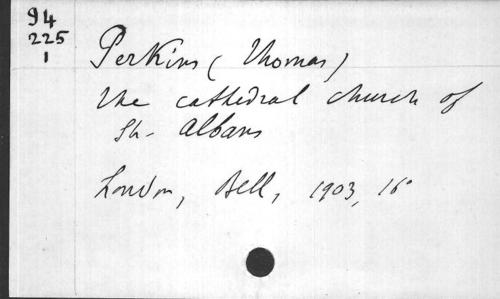 94
225
1
Perkins (Thomas)
the cathedral church of
St. Albans
London, Bell, 1903, 16°